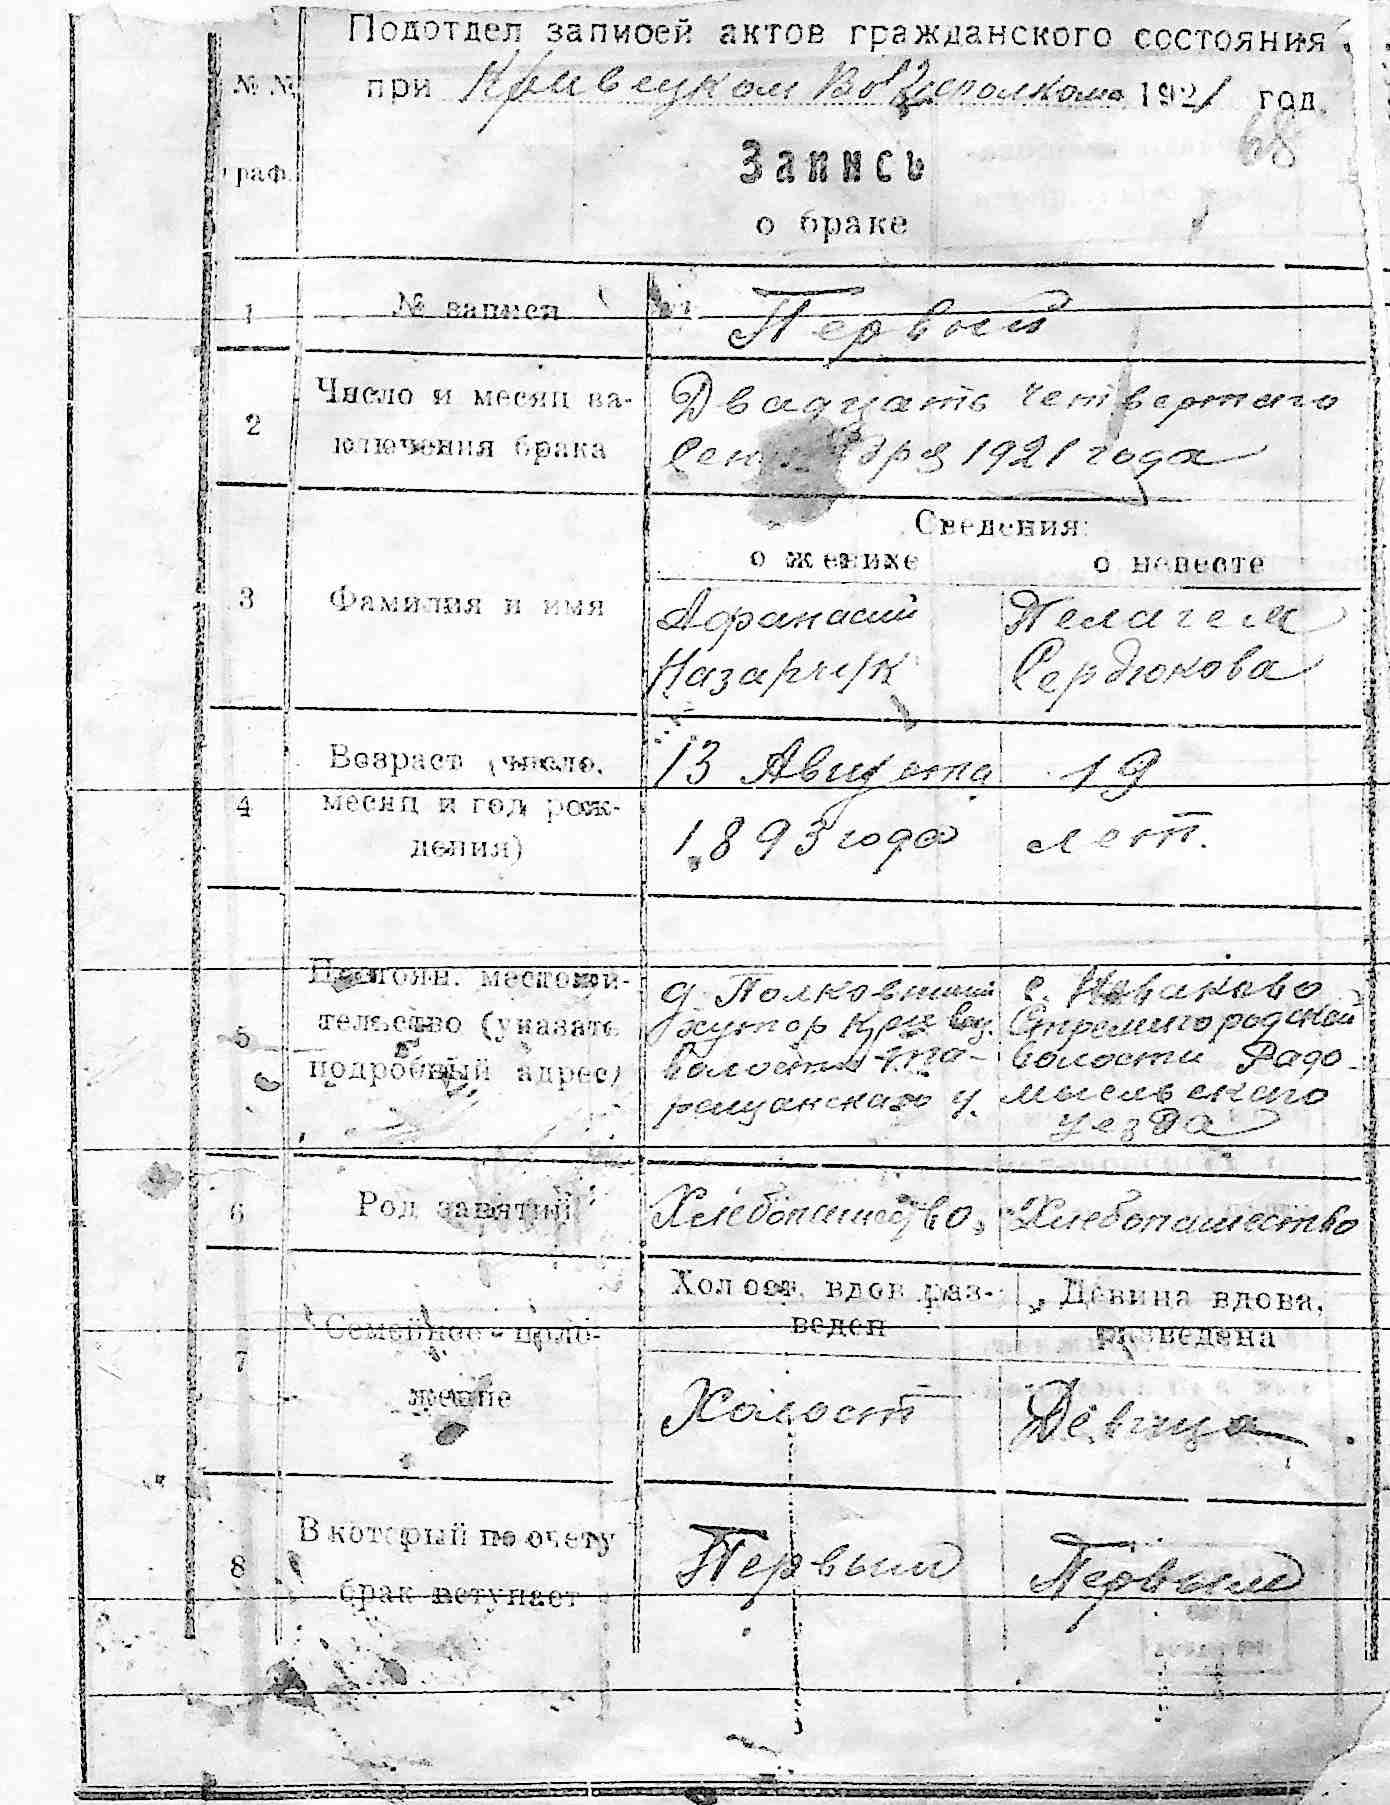 Подотдел записей актов гражданского состояния
№ № при Кривецком Волисполкоме 1921 год.
68
граф. Запись
о браке
1 № записи Первый
2 Число и месяц за- Двадцать четвертаго
ключения брака Сентября 1921 года
Сведения:
о женихе о невесте
3 Фамилия и имя Афанасий Пелагея
Назарчук Сердюкова
Возраст (число, 13 Августа 19
4 месяц и год рож- 1893 года лет.
дения)
Постоян. местожи- д. Полковничий с.
5 тельство (указать хутор Кривец. Стремигородской
подробный адрес) Волости Та- волости Радо-
ращанскаго у. мысльскаго
уезда
6 Род занятий Хлебопашество, Хлебопашество
Холост, вдов, раз- Девица вдова,
Семейное поло- веден разведена
7
жение Холост Девица
В который по счету
8 Первый Первый
брак вступает